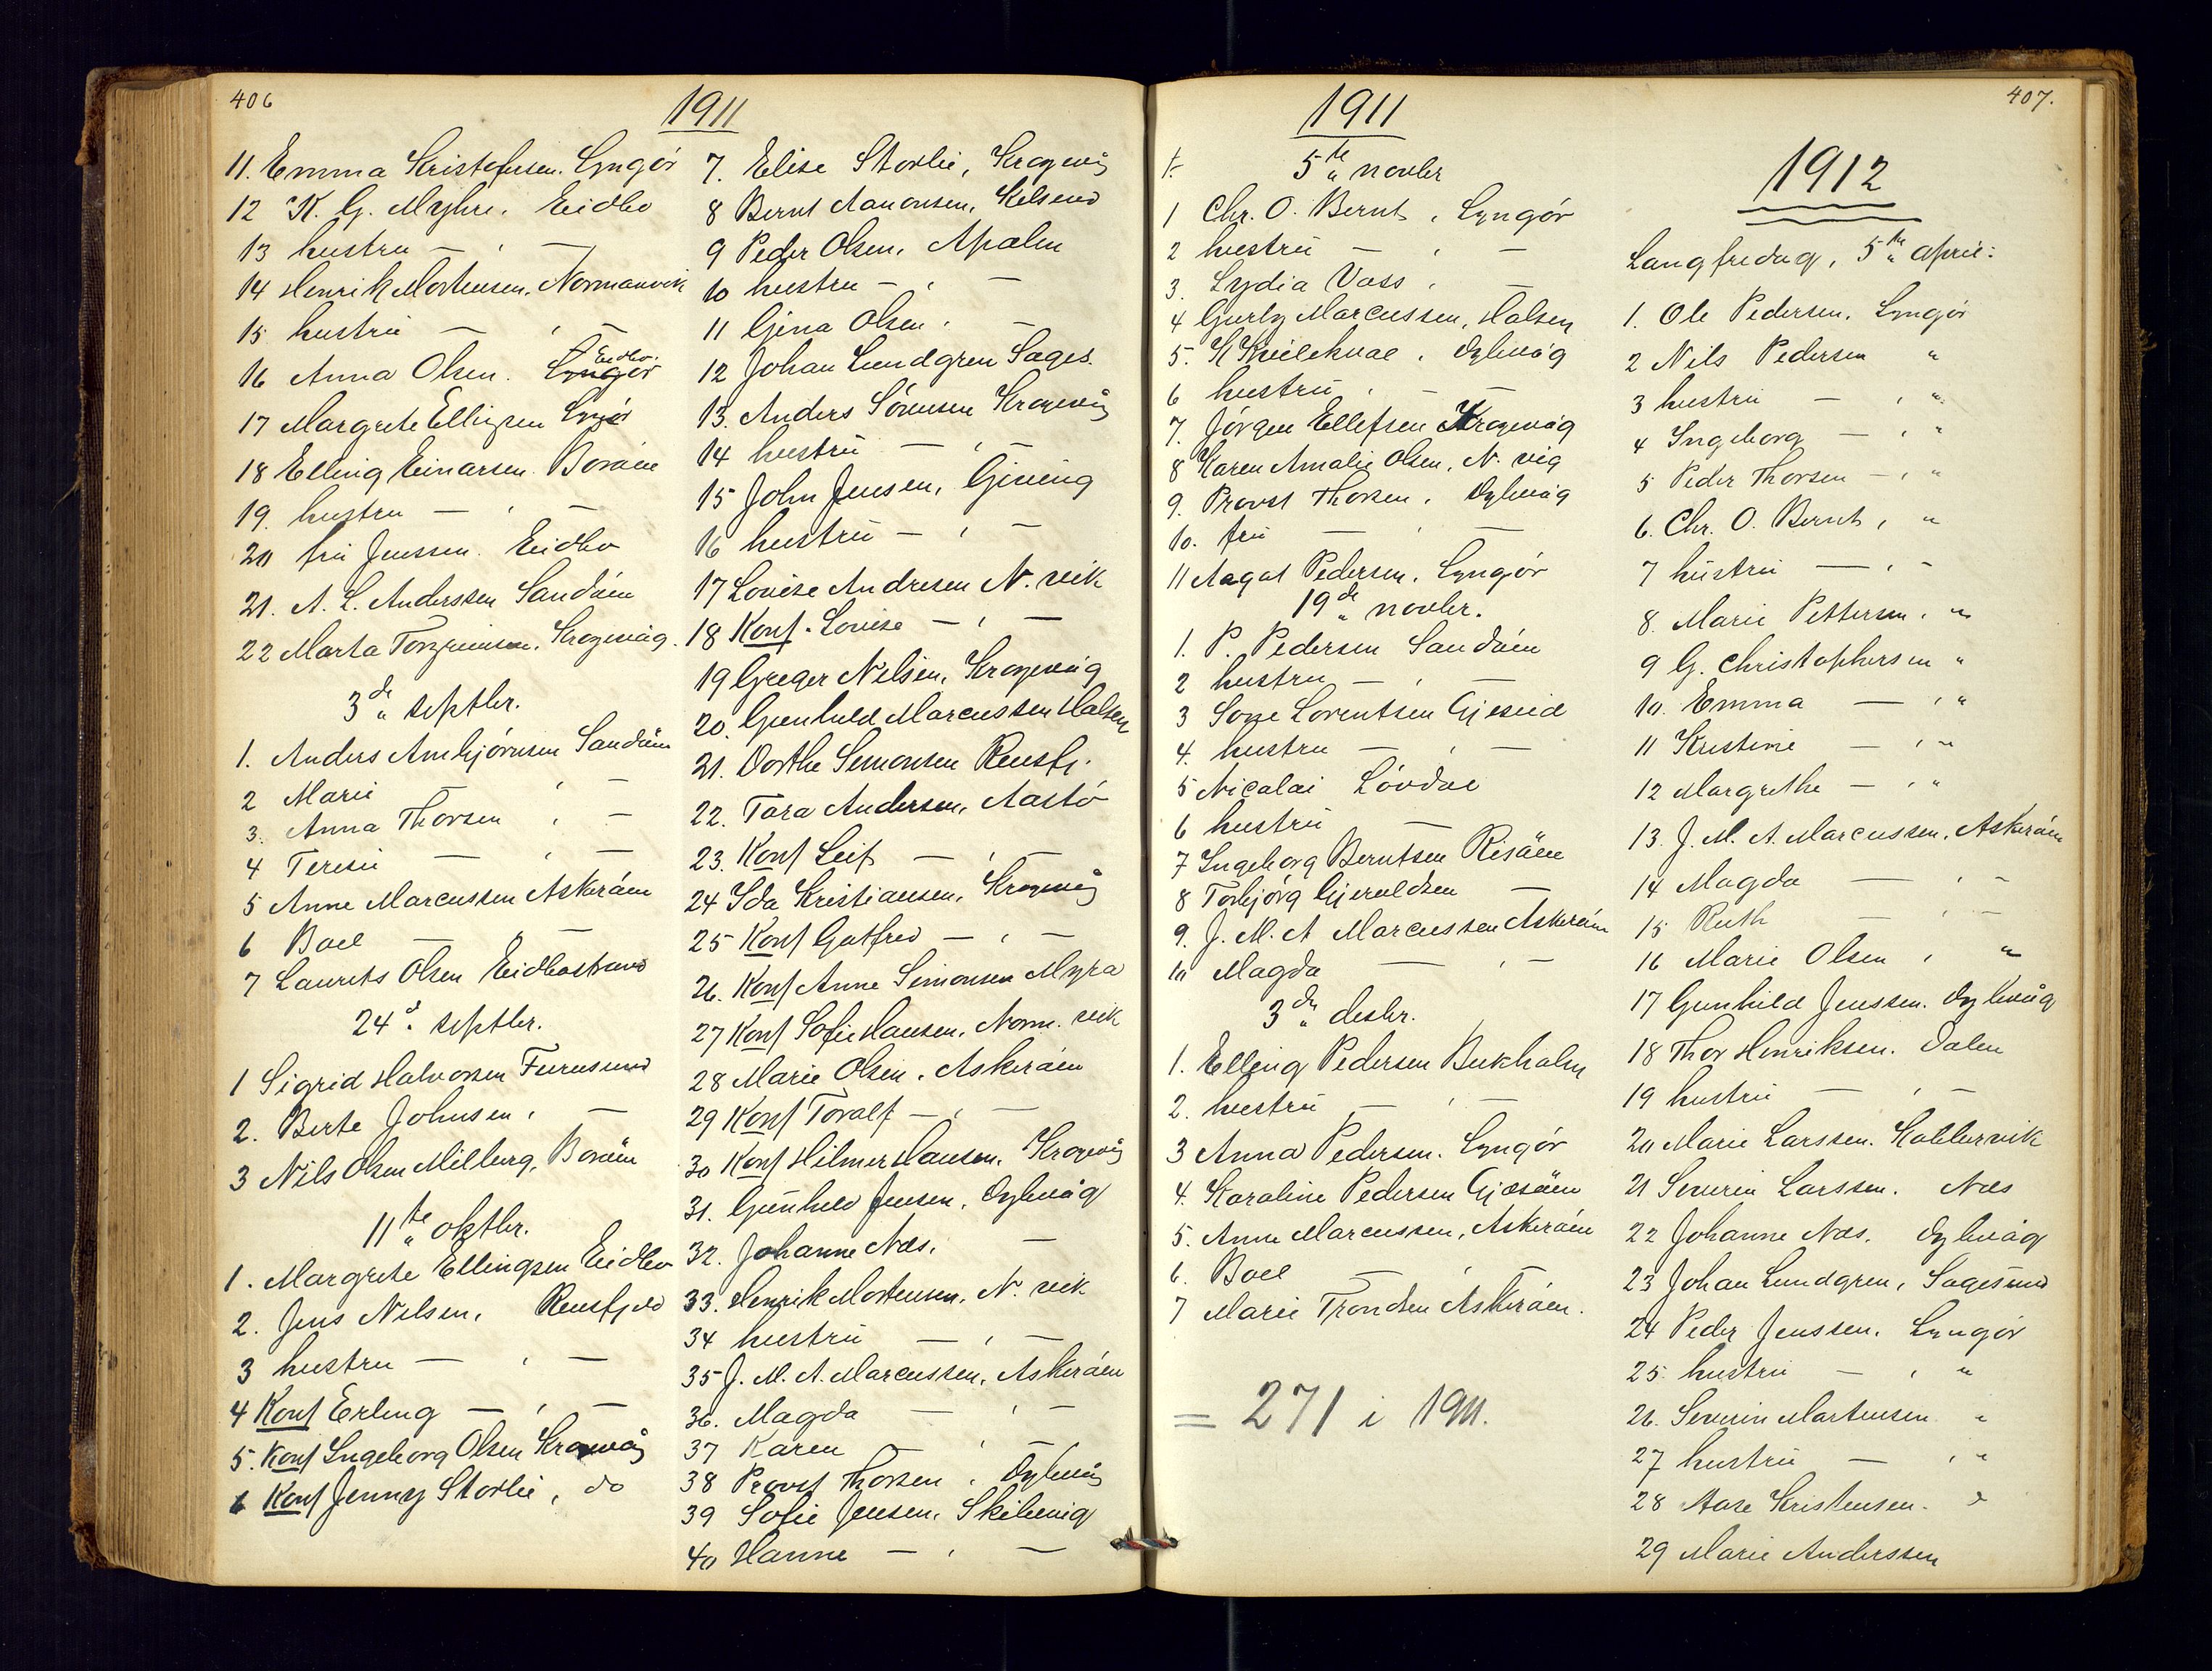 406
1911
11. Emma Kristofersen. Lyngör
12 K. G. Myhre. Eidbo
13 hustru — , —
14 Henrik Mortensen, Normanvik
15 hustru — , —
16 Anna Olsen. Lyngör Eidbo.
17 Margrete Ellingsen Lyngör
18 Elling Einarsen Boröen
19. hustru — , —
20 fru Jenssen. Eidbo
21. A. L. Anderssen Sandöen
22 Marta Torgrimsen, Krogevåg.
3de septbr.
1. Anders Ambjörnsen Sandöen
2 Marie , —
3. Anna Thorsen , —
4 Teresie — , —
5 Anne Marcussen Askeröen
6 Boel — " —
7 Laurits Olsen Eidbostrand
24d. septbr.
1 Sigrid Halvorsen Furusund
2. Berte Johnsen , —
3 Nils Olsen Milberg, Boröen
11te oktbr.
1. Margrete Ellingsen Eidbo
2. Jens Nilsen, Rensfjeld
3 hustru — , —
4 Konf Erling — , —
5. Konf Ingeborg Olsen Krogevåg
6 Konf Jenny Storlie, do
7. Elise Storlie, Krogevåg
8 Bernt Aanonsen, Kilsund
9 Peder Olsen, Apalen
10 hustru — , —
11 Gina Olsen , —
12 Johan Lundgren Sages.
13. Anders Sörensen Krogevåg
14 hustru — , —
15 John Jensen, Gjeving
16 hustru — , —
17 Lovise Andresen N. vik
18 Konf. Lovise — , —
19 Greger Nilsen, Krogevåg
20. Gunhild Marcussen Halsen
21. Dorthe Simonsen Rensfj.
22. Tara Andersen, Aastö
23. Konf Leif — , —
24 Ida Kristiansen, Krogevåg
25 Konf Gotfred — , —
26. Konf Anne Simonsen Myra
27 Konf Sofie Hansen, Norm. vik
28 Marie Olsen, Askeröen
29 Konf Toralf — , —
30 Konf Hilmer Hansen, Krogevåg
31. Gunhild Jensen, Dybvåg
32. Johanne Næs, —
33. Henrik Mortensen, N. vik
34 hustru — , —
35 J. M. A. Marcussen, Askeröen
36. Magda — , —
37 Karen — , —
38 Provst Thorsen , Dybvåg
39 Sofie Jensen, Skibvig
40 Hanne — , —
1911
5te novbr
1 Chr. O. Bernts, Lyngör
2 hustru — , —
3. Lydia Vass , —
4 Gurly Marcussen, Halsen
5. K Kvilekval, Dybvåg
6 hustru , — —
7. Jörgen Ellefsen Krogevåg
8 Karen Amalie Olsen, N. vig
9. Provst Thorsen, Dybvåg
10. fru — , —
11 Aagot Pedersen, Lyngör
19de novbr.
1. P. Pedersen Sandöen
2 hustru — , —
3 Sove Lorentsen Gjesøid
4. hustru — , —
5 Nicolai Lövdal
6 hustru —
7 Ingeborg Berntsen Risöen
8 Torbjörg Gjeruldsen —
9. J. M. A Marcussen Askeröen
10 Magda — , —
3die desbr.
1. Elling Pedersen Bukholm
2. hustru — , —
3 Anna Pedersen. Lyngör
4. Karoline Pedersen Gjæsöen
5. Anne Marcussen, Askeröen
6. Boel — , —
7 Marie Trondsen Askeröen.
= 271 i 1911.
407.
1912
Langfredag, 5te april:
1. Ole Pedersen. Lyngör
2 Nils Pedersen "
3 hustru — , "
4 Ingeborg — , "
5 Peder Thorsen — , "
6. Chr. O. Bernts, "
7 hustru — , "
8. Marie Pettersen, "
9 G. Christophersen "
10. Emma — , "
11 Kristine — , "
12 Margrethe — , "
13. J. M. A. Marcussen, Askeröen
14 Magda — , —
15 Ruth — , —
16 Marie Olsen , "
17 Gunhild Jenssen. Dybvåg
18 Thor Henriksen. Dalen
19 hustru — , —
20 Marie Larssen. Kaltervik
21 Severin Larssen. Næs
22 Johanne Næs. Dybvåg
23 Johan Lundgren, Sagesund
24 Peder Jenssen. Lyngör
25. hustru — , "
26. Severin Martinsen "
27 hustru — , "
28 Aase Kristensen. "
29 Marie Anderssen